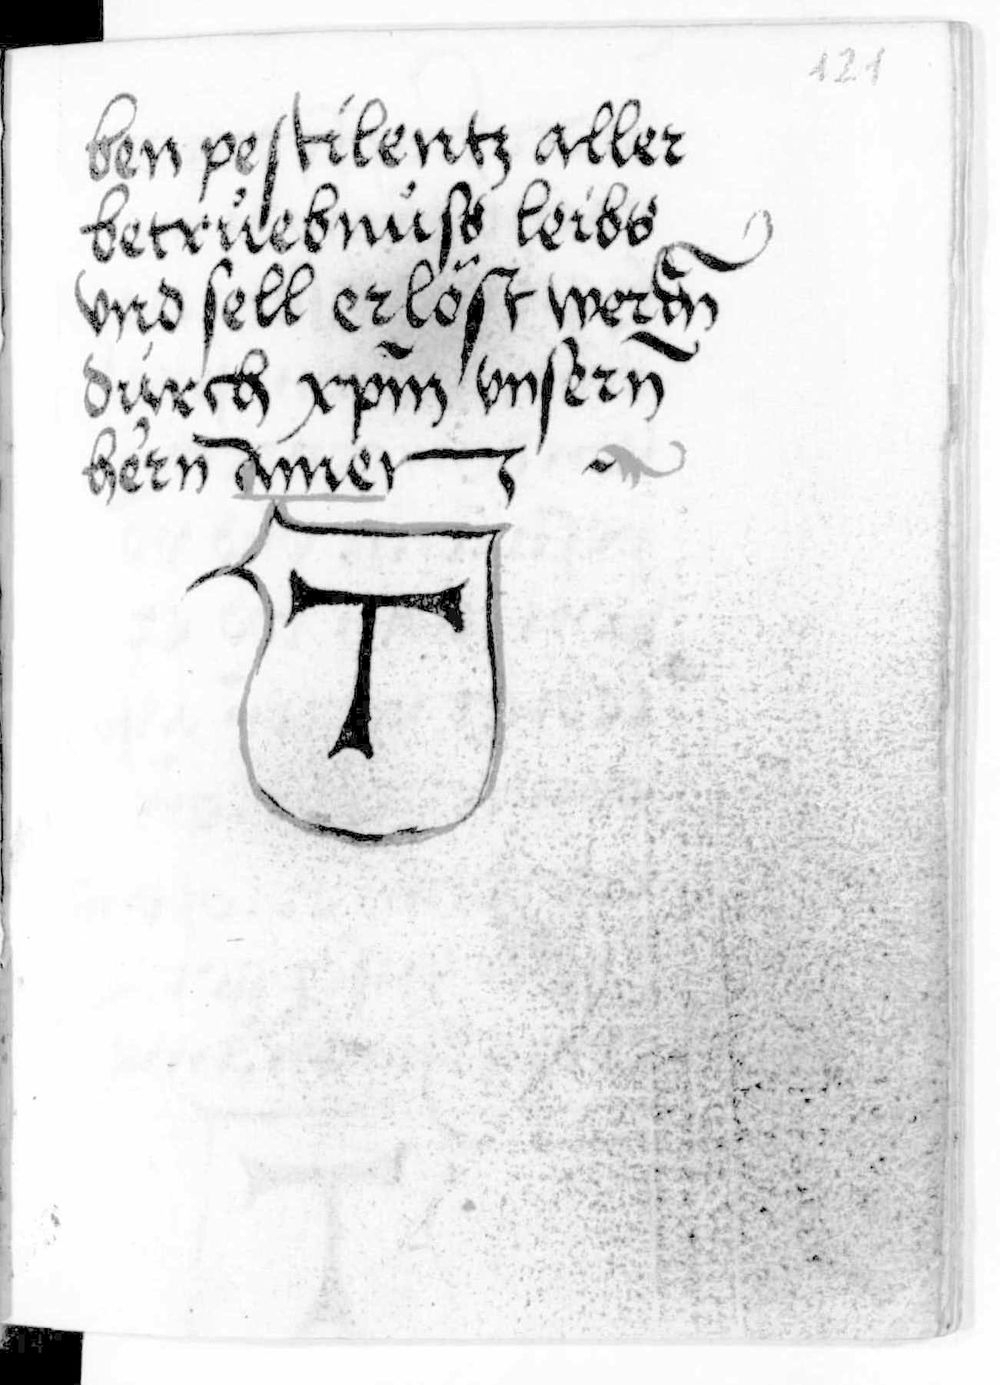 121
ben pestilentz aller
betrůebnůss leibs
vnd sell erlöst werdn̄
dúrch xp̄m vnsern̄
hern amen
T